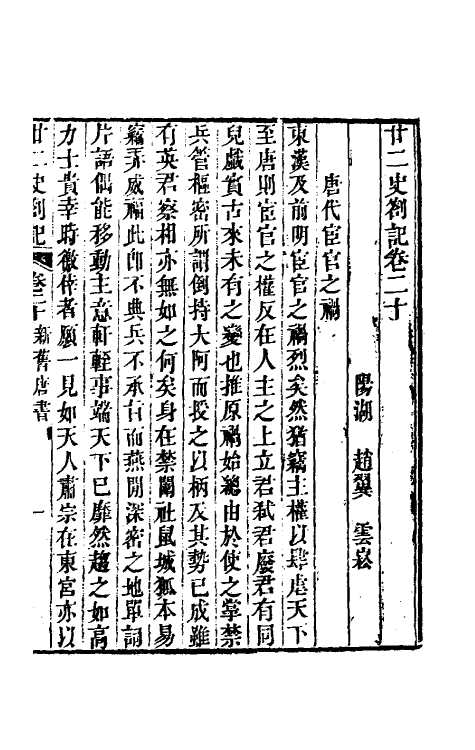 廿二史劄記卷二十
陽湖 趙翼 雲崧
唐代宦官之禍
東漢及前明宦官之禍烈矣然猶竊主權以肆虐天下
至唐則宦官之權反在人主之上立君弑君廢君有同
兒戲實古來未有之變也推原禍始總由於使之掌禁
兵管樞密所謂倒持大阿而授之以柄及其勢已成雖
有英君察相亦無如之何矣身在禁闈社鼠城狐本易
竊弄威福此卽不典兵不承旨而燕閒深密之地單詞
片語偶能移動主意軒輊事端天下已靡然趨之如高
力士貴幸時徼倖者願一見如天人肅宗在東宮亦以
廿二史劄記 卷二十 新舊唐書 一